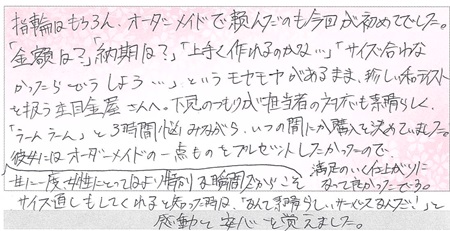 指輪はもちろん、オーダーメイドで頼んだのも今回が初めてでした。
「金額は？」「納期は？」「上手く作れるのかな…」「サイズ合わな
かったらどうしよう…」というモヤモヤがあるまま、珍しい和テイスト
を扱う杢目金屋さんへ。下見のつもりが担当者の対応も素晴らしく、
「うーんうーん」と3時間悩みながら、いつの間にか購入を決めていました。
彼女にはオーダーメイドの一点ものをプレゼントしたかったので、
一生に一度、女性にとってはより特別な瞬間だからこそ 満足のいく仕上がりに
なって良かったです。
サイズ直しもしてくれると知った時は、「なんて素晴らしいサービスなんだ！」と
感動と安心を覚えました。